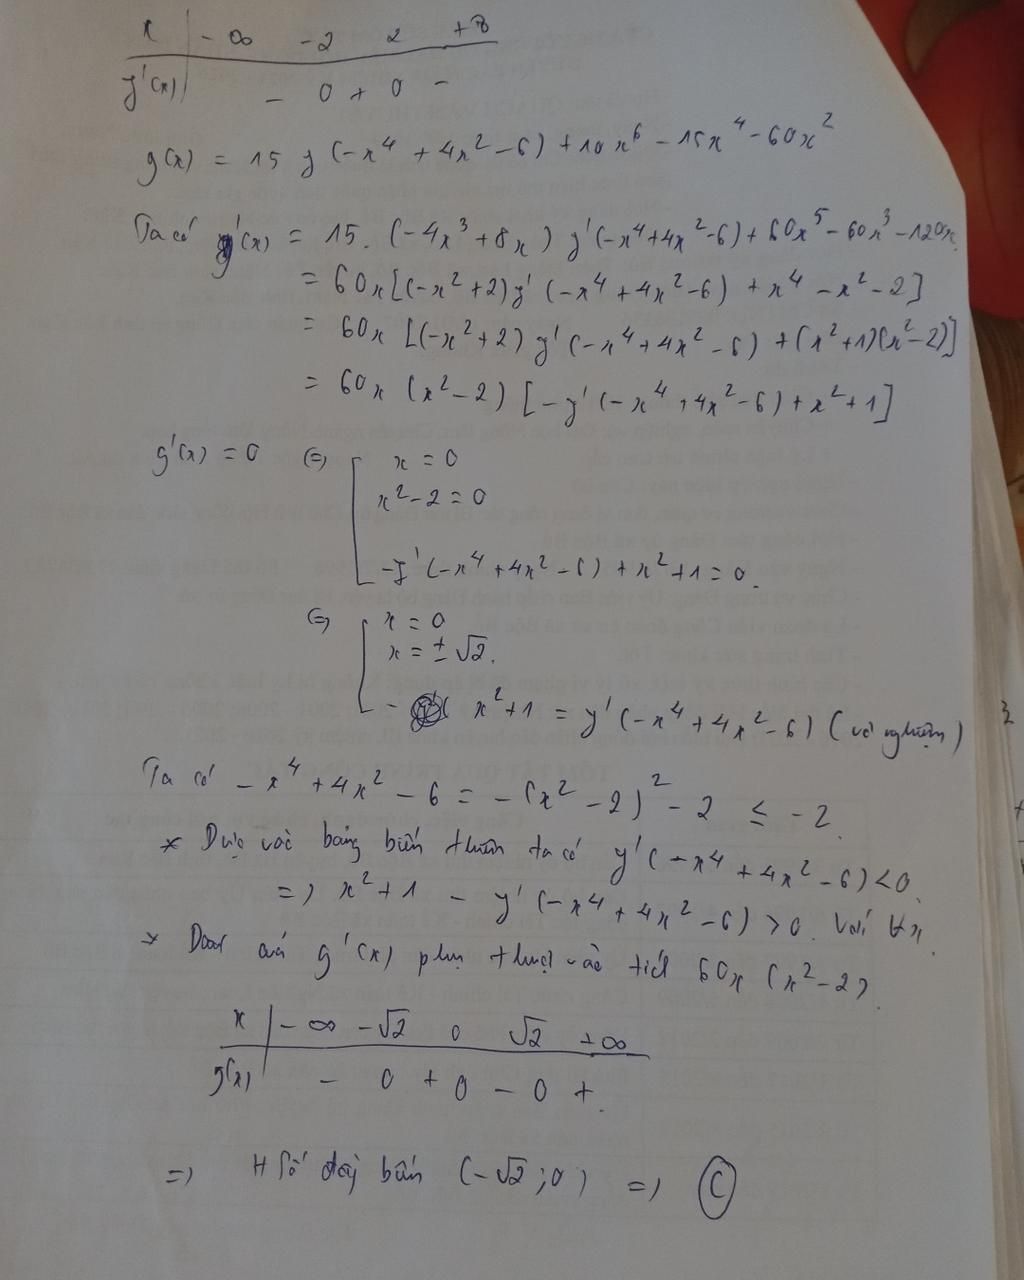 x | -∞ -2 2 +∞
y'(x) | - 0 + 0 -
g(x) = 15 y (-x⁴ + 4x² - 6) + 10x⁶ - 15x⁴ - 60x²
Ta có g'(x) = 15. (-4x³ + 8x) y'(-x⁴+4x²-6) + 60x⁵ - 60x³ - 120x
= 60x [(-x²+2) y' (-x⁴ + 4x² - 6) + x⁴ - x² - 2]
= 60x [(-x²+2) y' (-x⁴ + 4x² - 6) + (x²+1)(x²-2)]
= 60x (x²-2) [-y' (-x⁴ + 4x² - 6) + x² + 1]
g'(x) = 0 (=) x = 0
x² - 2 = 0
-y' (-x⁴ + 4x² - 6) + x² + 1 = 0.
(=) x = 0
x = ± √2.
x² + 1 = y' (-x⁴ + 4x² - 6) (vô nghiệm)
Ta có -x⁴ + 4x² - 6 = -(x² - 2)² - 2 ≤ -2.
* Dựa vào bảng biến thiên ta có y' (-x⁴ + 4x² - 6) < 0.
=) x² + 1 - y' (-x⁴ + 4x² - 6) > 0. Với ∀x.
* g'(x) phụ thuộc vào tích 60x (x²-2)
x | -∞ -√2 0 √2 +∞
g'(x) | - 0 + 0 - 0 +.
=) H Số đồng biến (-√2; 0) =) C